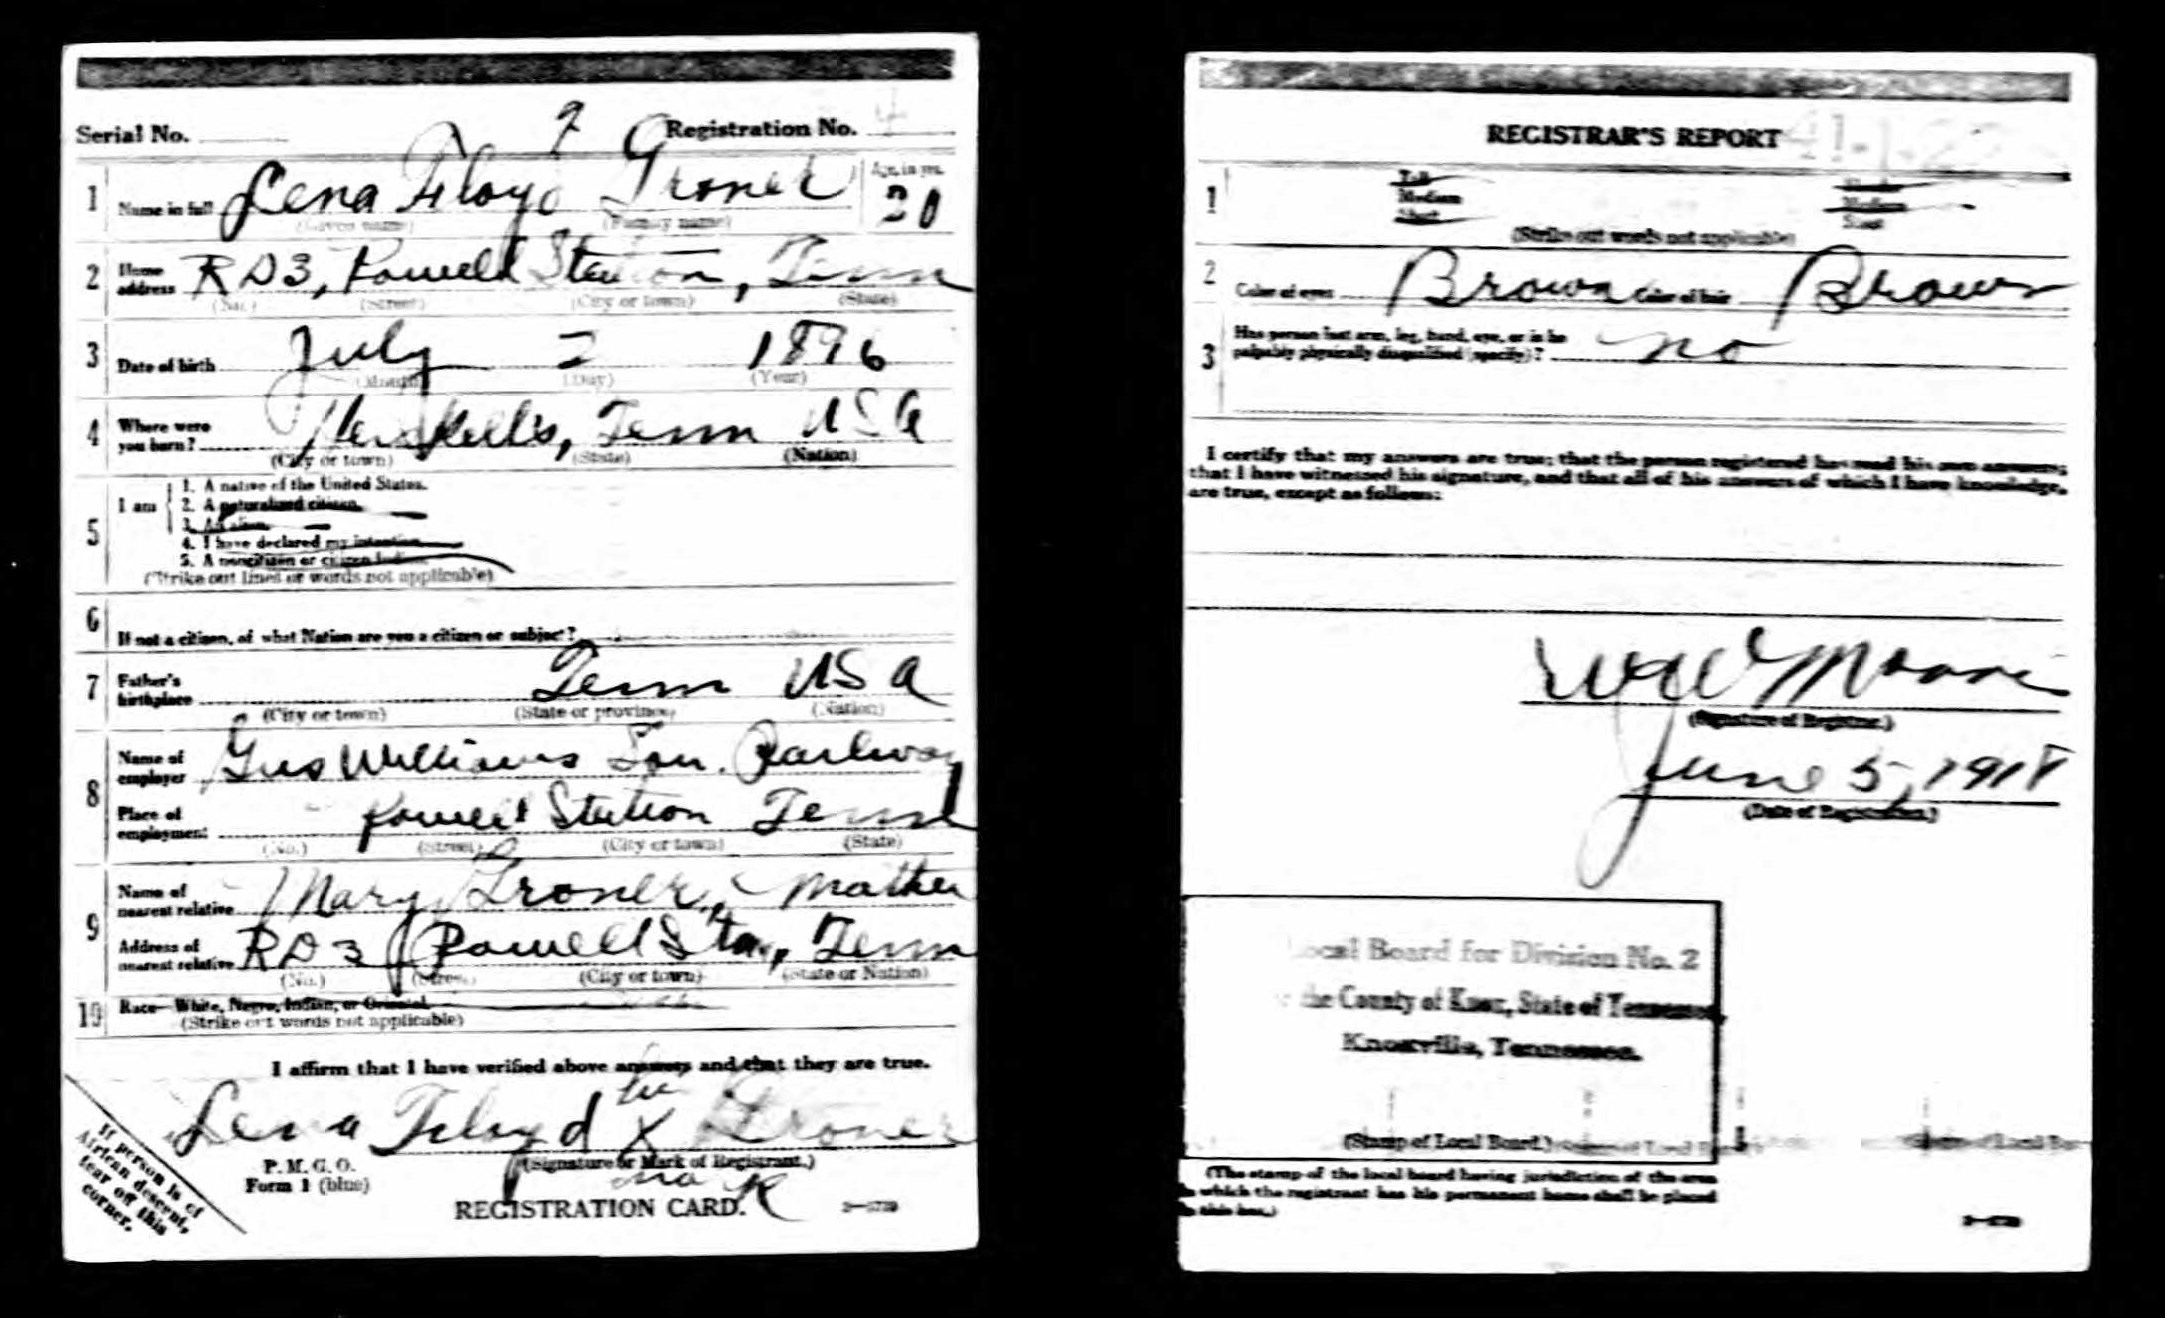 Serial No.
9
Registration No. 4
1 Name in full Lena Floyd Groner Age, in yrs. 20
(Given name) (Family name)
2 Home address RD3, Powell Station, Tenn
(No.) (Street) (City or town) (State)
3 Date of birth July 2 1896
(Month) (Day) (Year)
4 Where were you born? Heiskells, Tenn USA
(City or town) (State) (Nation)
5 I am
1. A native of the United States.
2. A naturalized citizen.
3. An alien.
4. I have declared my intention.
5. A noncitizen or citizen Indian.
(Strike out lines or words not applicable)
6 If not a citizen, of what Nation are you a citizen or subject?
7 Father's birthplace Tenn USA
(City or town) (State or province) (Nation)
8 Name of employer Gus Williams Sou. Railway
Place of employment Powell Station Tenn
(No.) (Street) (City or town) (State)
9 Name of nearest relative Mary Groner, Mother
Address of nearest relative RD 3 Powell Sta, Tenn
(No.) (Street) (City or town) (State or Nation)
10 Race—White, Negro, Indian, or Oriental.
(Strike out words not applicable)
I affirm that I have verified above answers and that they are true.
his
Lena Floyd X Groner
(Signature or Mark of Registrant.)
mark
P. M. G. O.
Form 1 (blue)
REGISTRATION CARD.
If person is of
African descent,
tear off this
corner.
REGISTRAR'S REPORT
1 Tall Medium Short Slender Medium Stout
(Strike out words not applicable)
2 Color of eyes Brown Color of hair Brown
3 Has person lost arm, leg, hand, eye, or is he
palpably physically disqualified (specify)? no
I certify that my answers are true; that the person registered has read his own answers;
that I have witnessed his signature, and that all of his answers of which I have knowledge,
are true, except as follows:
(Signature of Registrar.)
June 5, 1918
(Date of Registration.)
Local Board for Division No. 2
the County of Knox, State of Tennessee,
Knoxville, Tennessee.
(Stamp of Local Board.)
(The stamp of the local board having jurisdiction of the area
in which the registrant has his permanent home shall be placed
in this box.)